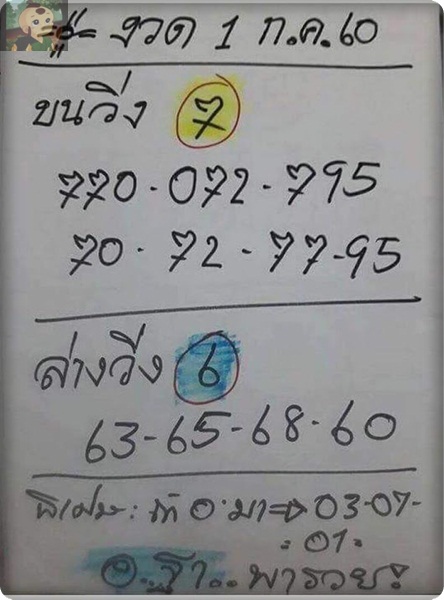 งวด 1 ก.ค. 60
บนวิ่ง 7
770 - 072 - 795
70 - 72 - 77 - 95
ล่างวิ่ง 6
63 - 65 - 68 - 60
พิเศษ: ถ้า 0 มา => 03-07-
= 01 =
อ.ฐา.. พารวย!